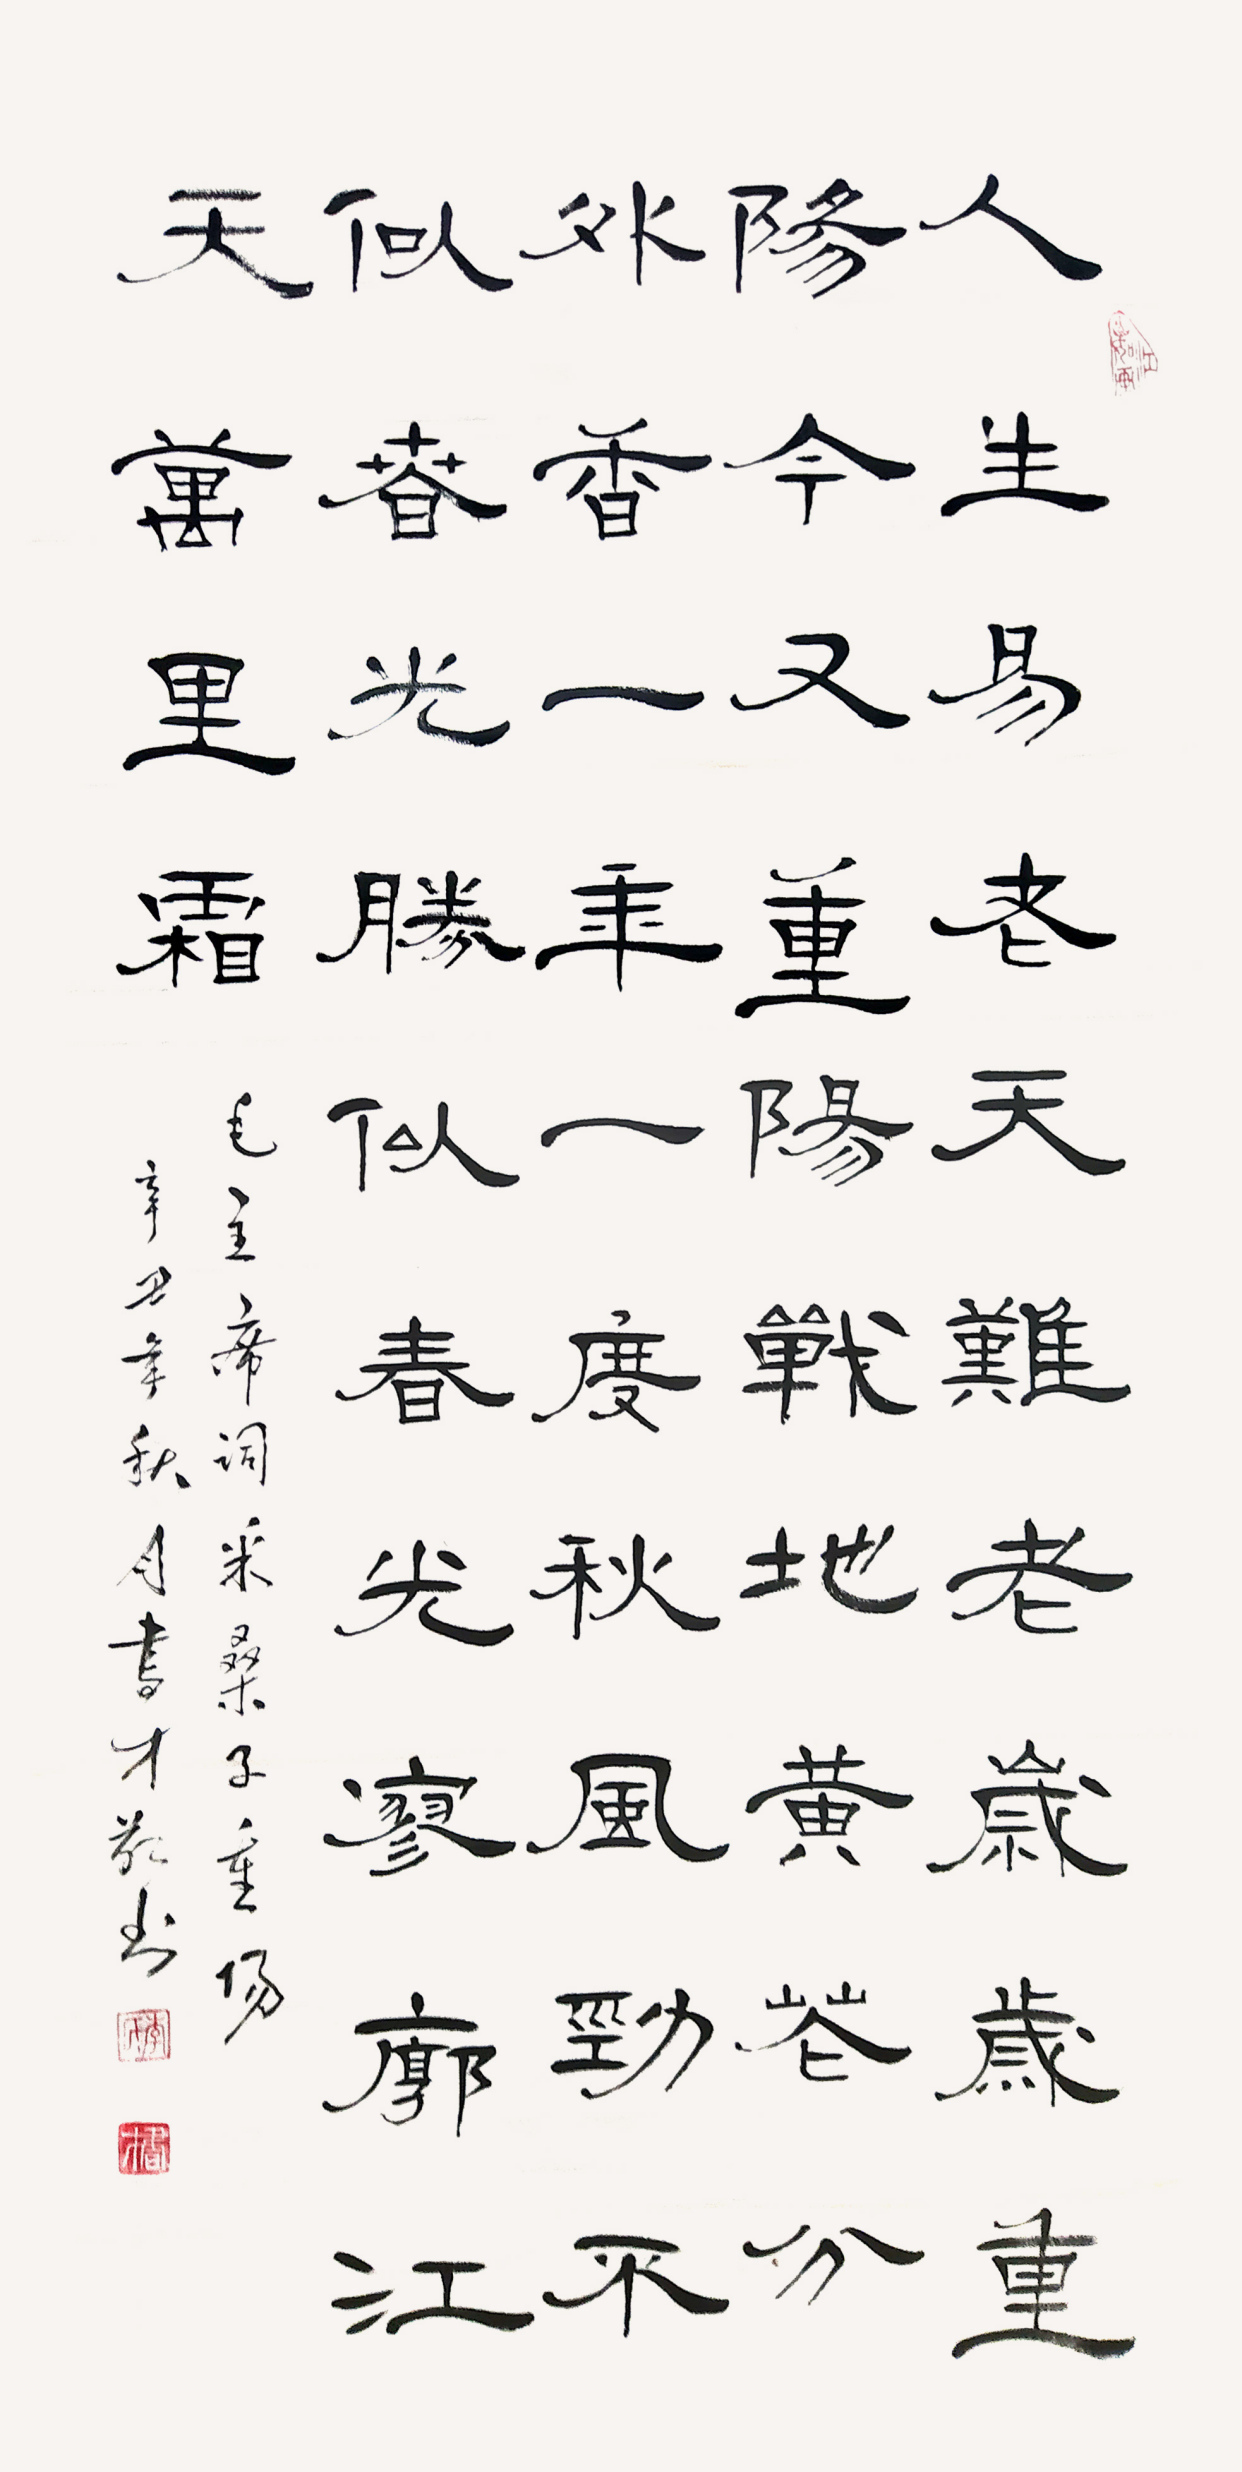 人生易老天難老歲歲重
陽今又重陽戰地黃花分
外香一年一度秋風勁不
似春光勝似春光寥廓江
天萬里霜
毛主席詞采桑子重陽
辛丑年秋月書才敬书